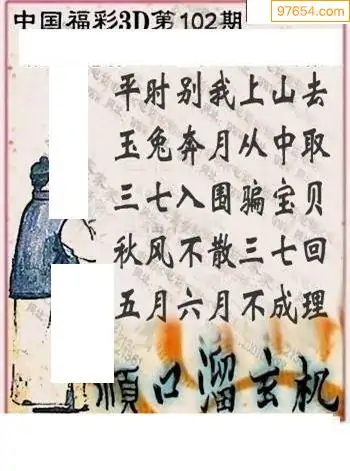 97654.com
中国福彩3D第102期
平时别我上山去
玉兔奔月从中取
三七入围骗宝贝
秋风不散三七回
五月六月不成理
顺口溜玄机